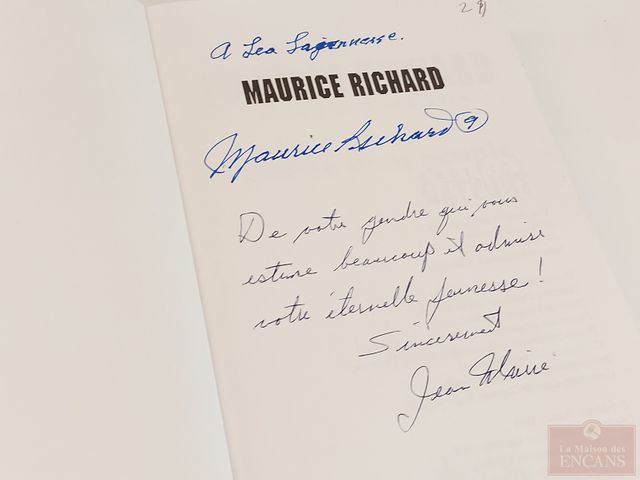 29)
A Lea Lajeunesse.
MAURICE RICHARD
Maurice Richard 9
De votre gendre qui vous
estime beaucoup et admire
votre éternelle jeunesse !
Sincerement
Jean Marie
La Maison des
ENCANS